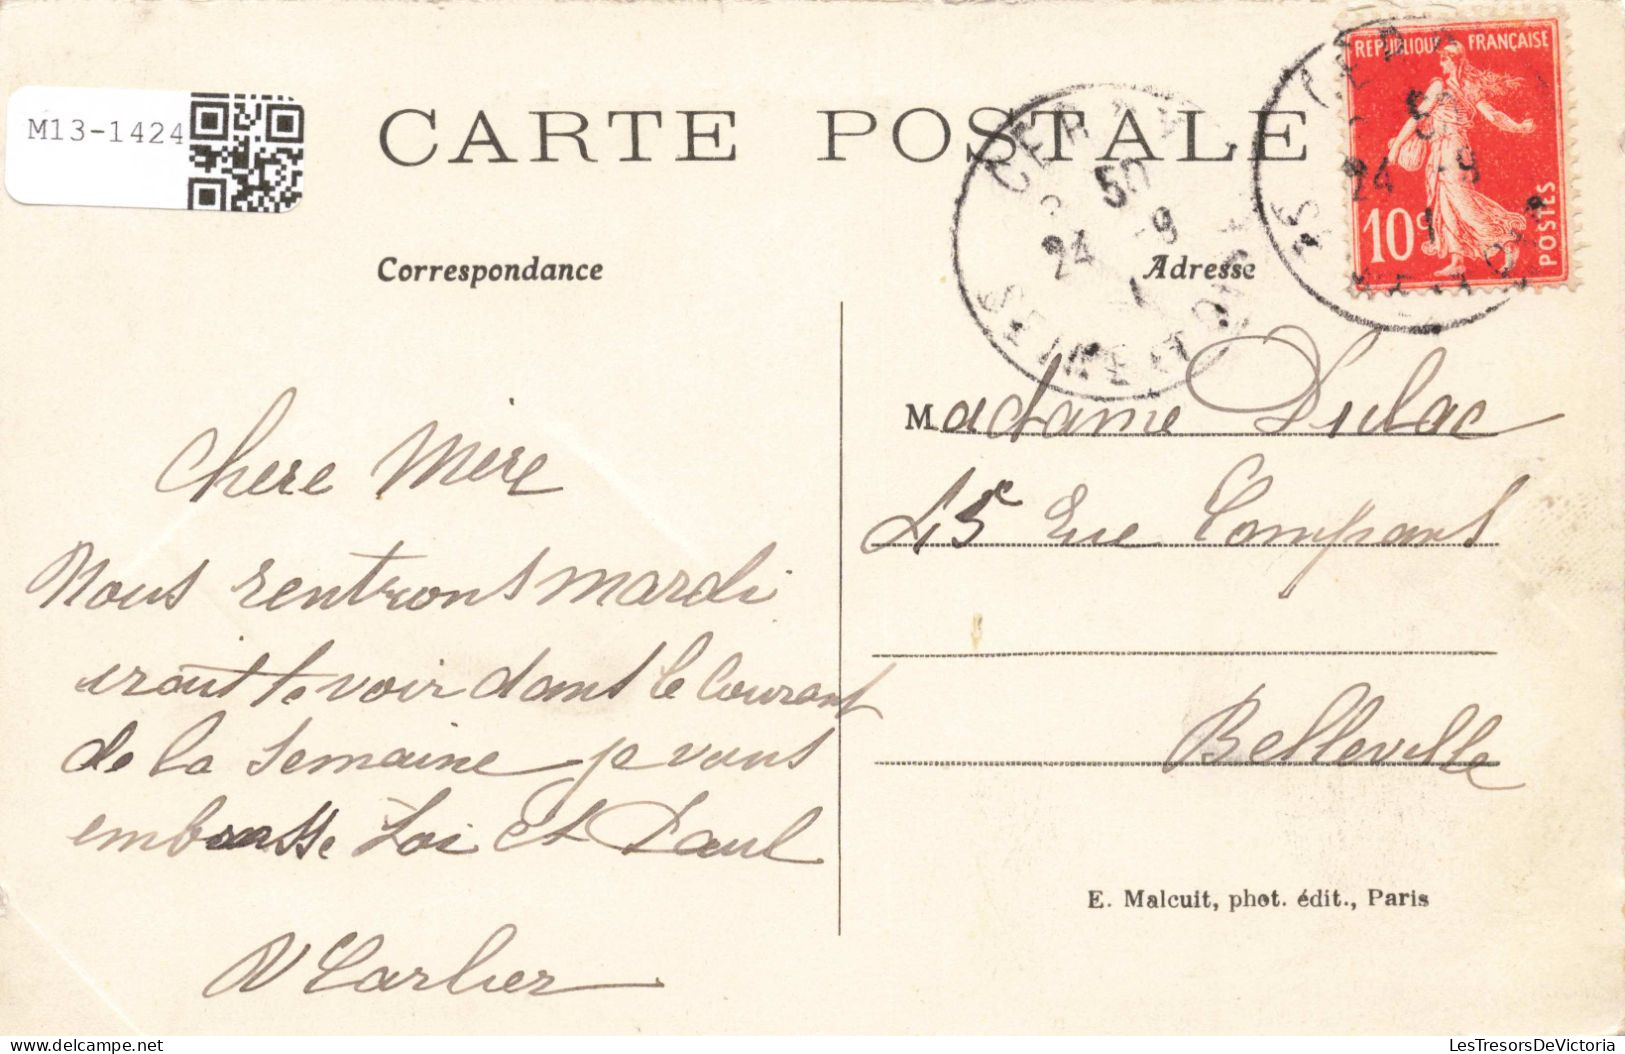 M13-1424
CARTE POSTALE
REPUBLIQUE FRANÇAISE
10c
POSTES
50
24 -9
1
50
24 -9
1
Correspondance
Adresse
Madame Dulac
45 Rue Compans
Belleville
Chere Mere
Nous rentrons mardi
iront te voir dans le courant
de la semaine je vous
embrasse Toi et Paul
V Carlier
E. Malcuit, phot. édit., Paris
delcampe.net
LesTresorsDeVictoria